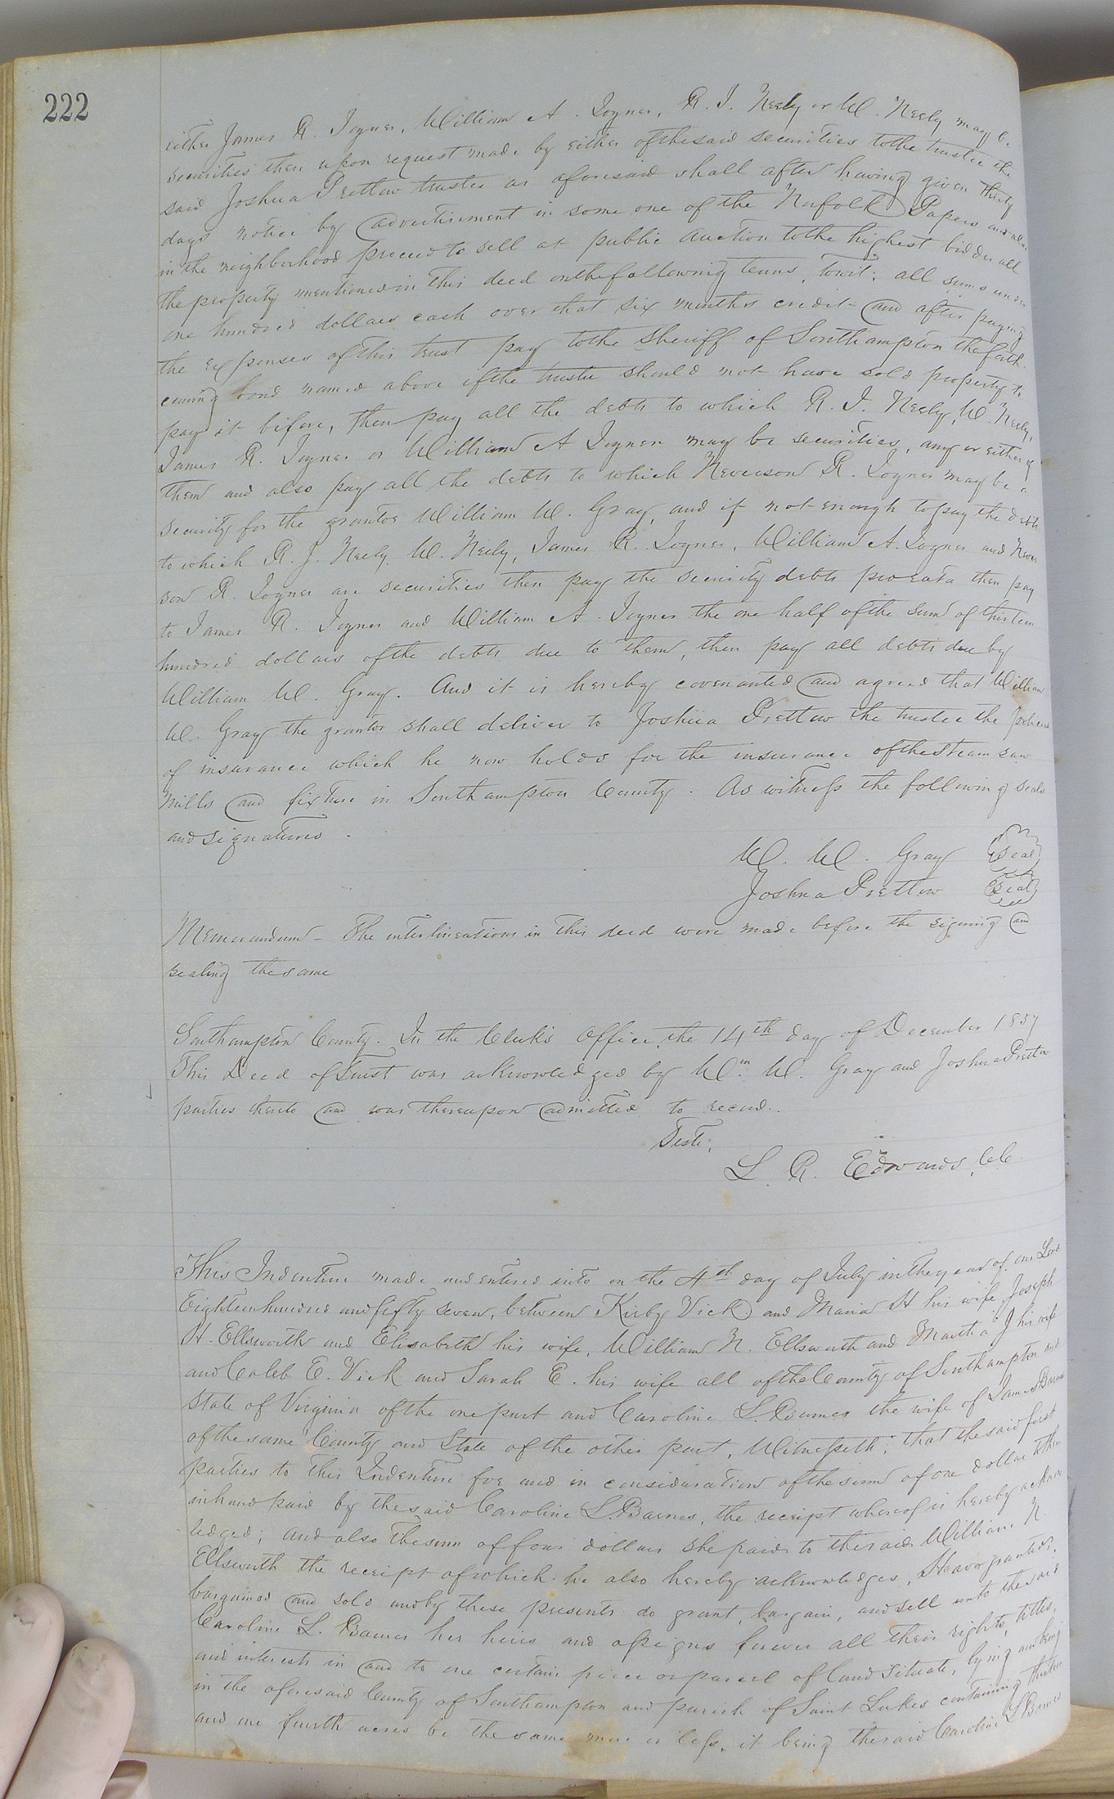 222
either James R. Joyner, William A. Joyner, R. J. Neely or W. Neely may be
securities then upon request made by either of the said securities to the trustee the
said Joshua Prettow trustee as aforesaid shall after having given thirty
days notice by advertisement in some one of the Norfolk Papers and also
in the neighborhood proceed to sell at public auction to the highest bidder all
the property mentioned in this deed on the following terms, towit: all sums under
one hundred dollars cash over that six months credit and after paying
the expenses of this trust pay to the Sheriff of Southampton the forth
coming bond named above if the trustee should not have sold property to
pay it before, then pay all the debts to which R. J. Neely, W. Neely,
James R. Joyner or William A Joyner may be securities, any or either of
them and also pay all the debts to which Neverson R. Joyner may be a
security for the grantor William W. Gray, and if not enough to pay the debts
to which R. J. Neely, W. Neely, James R. Joyner, William A. Joyner and Never
son R. Joyner are securities then pay the security debts prorata then pay
to James R. Joyner and William A. Joyner the one half of the sum of thirteen
hundred dollars of the debts due to them, then pay all debts due by
William W. Gray. And it is hereby covenanted and agreed that William
W. Gray the grantor shall deliver to Joshua Prettow the trustee the policies
of insurance which he now holds for the insurance of the Steam saw
mills and fixture in Southampton County. As witness the following seals
and signatures.
W. W. Gray Seal
Joshua Prettow Seal
Memorandum - The interlineations in this deed were made before the signing and
sealing the same
Southampton County. In the Clerk's Office, the 14th day of December 1857
This Deed of Trust was acknowledged by Wm. W. Gray and Joshua Prettow
parties thereto and was thereupon admitted to record.
Teste;
L. R. Edwards, CC
This Indenture made and entered into on the 4th day of July in the year of our Lord
Eighteen hundred and fifty seven, between Kirby Vick and Maria H his wife, Joseph
H. Ellsworth and Elisabeth his wife, William N. Ellsworth and Martha J his wife
and Caleb E. Vick and Sarah E. his wife all of the County of Southampton and
State of Virginia of the one part and Caroline L. Barnes the wife of James Barnes
of the same County and State of the other part, Witnesseth: that the said first
parties to this Indenture for and in consideration of the sum of one dollar to them
in hand paid by the said Caroline L. Barnes, the receipt whereof is hereby acknow
ledged; and also the sum of four dollars she paid to the said William N
Ellsworth the receipt of which he also hereby acknowledges, Have granted,
bargained and sold and by these presents do grant, bargain, and sell unto the said
Caroline L. Barnes her heirs and assigns forever all their rights, titles,
and interests in and to one certain piece or parcel of land situate, lying and being
in the aforesaid County of Southampton and parish of Saint Lukes containing thirteen
and one fourth acres be the same more or less, it being the said Caroline L Barnes